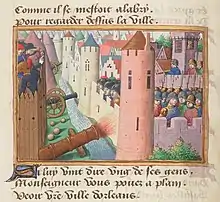 Comme il se mectoit a labry
Pour regarder dessus la ville.
A luy vint dire ung de ses gens,
Monseigneur vous povez a plain,
Veoir vre ville dorleans.